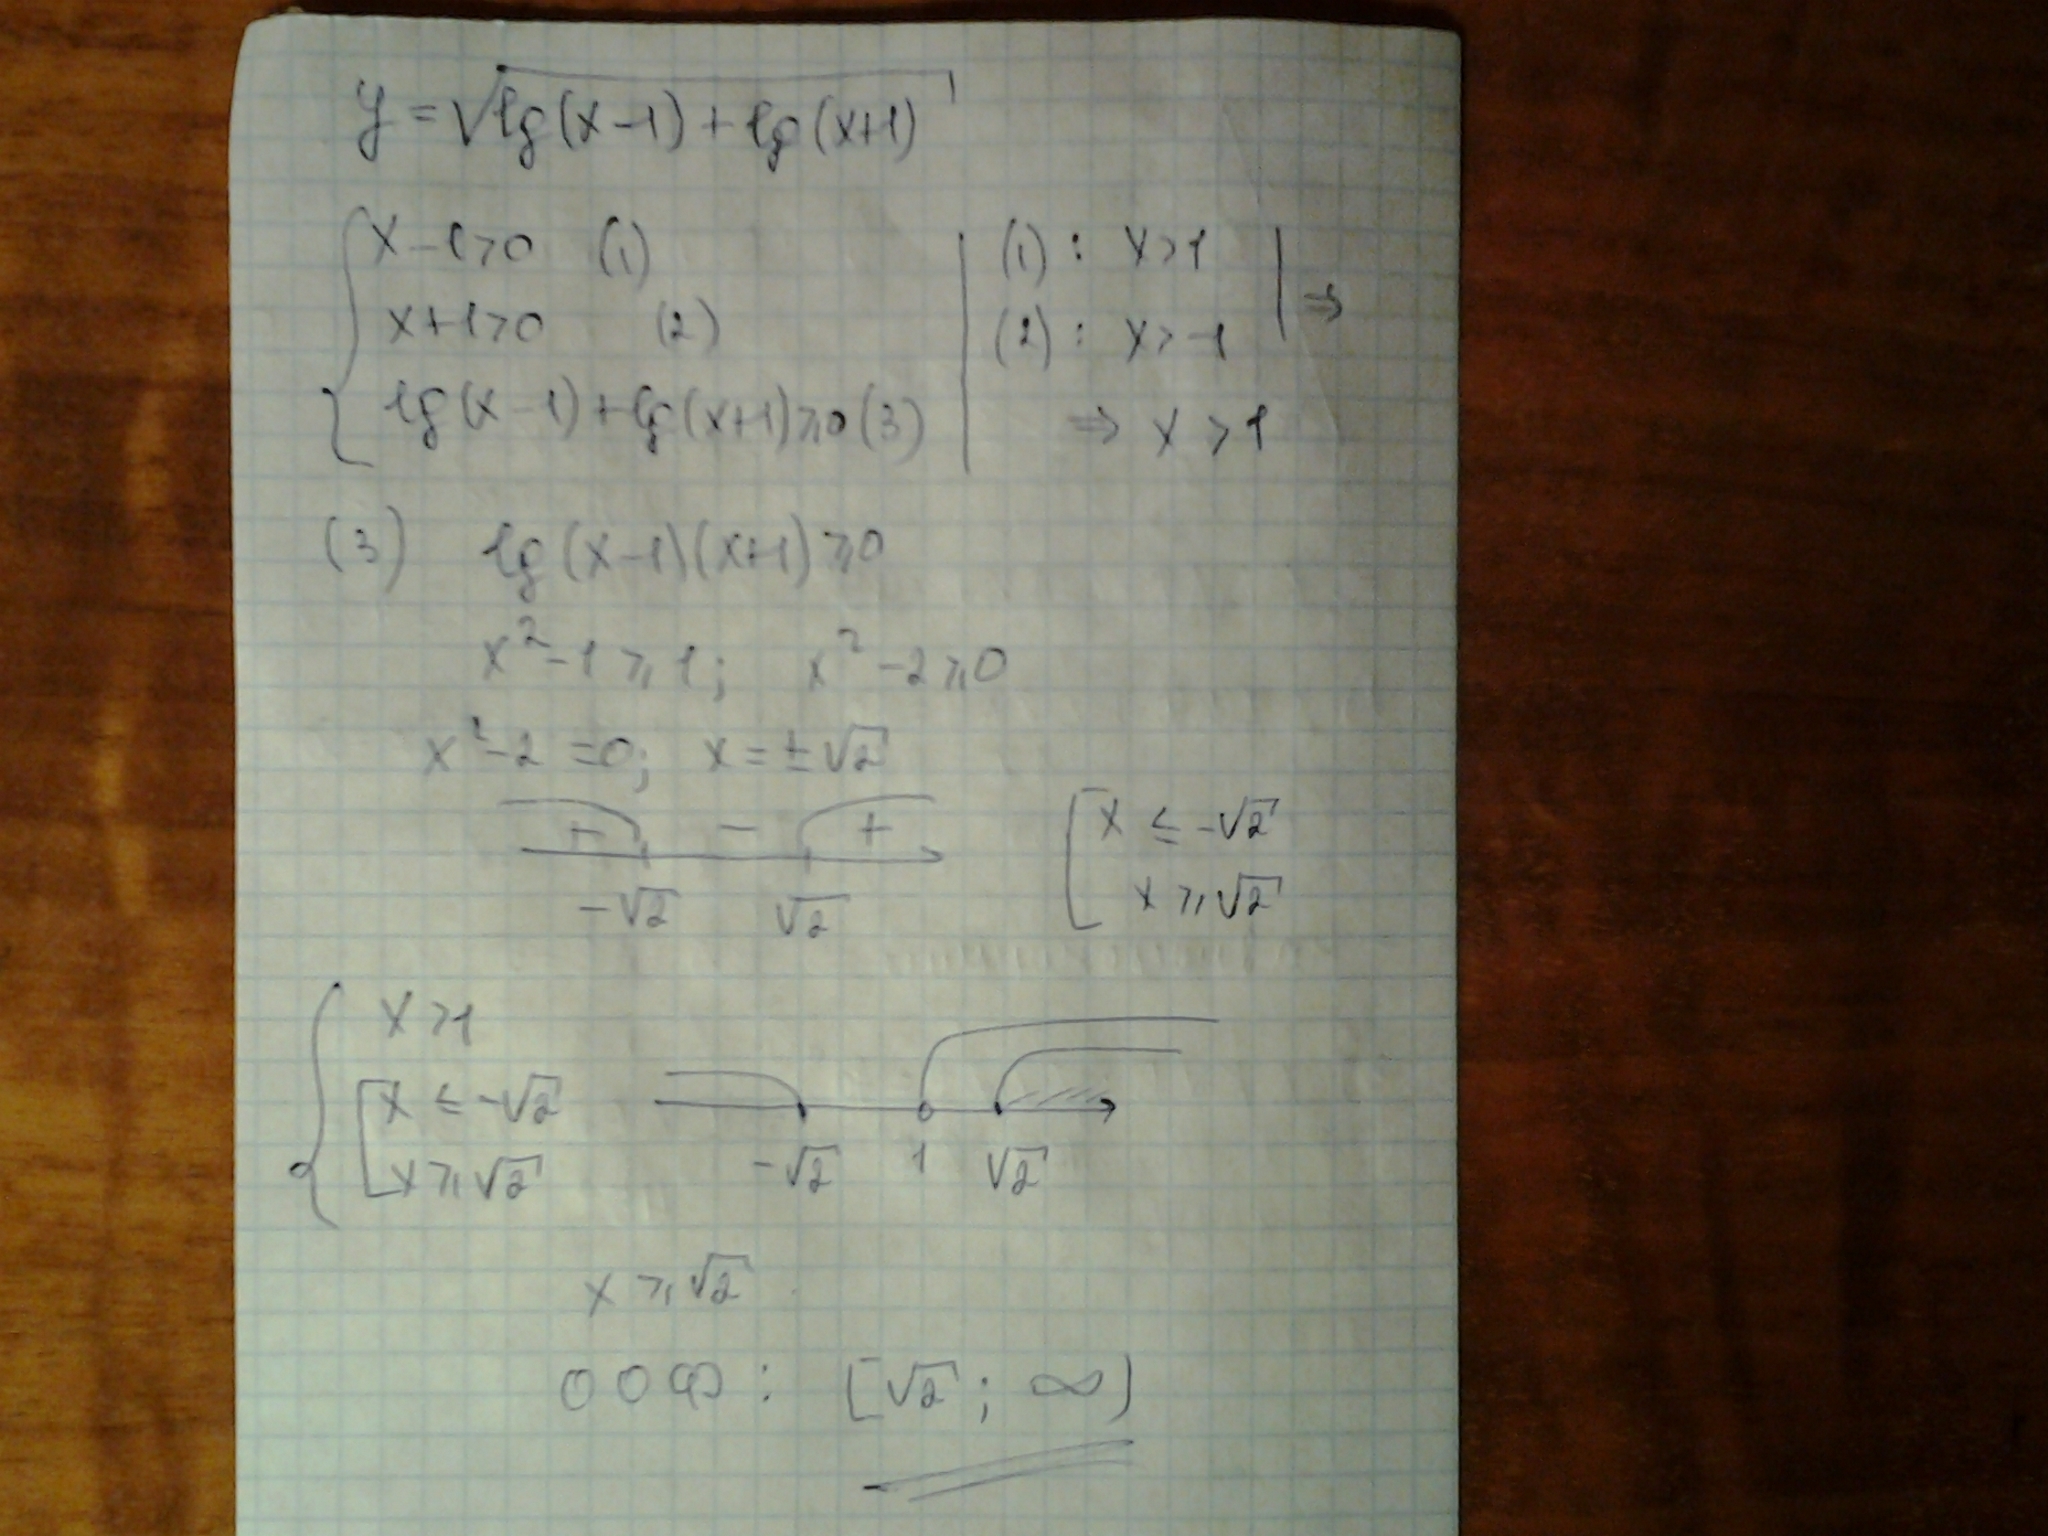 y = √lg(x-1) + lg(x+1)
x-1>0 (1)
x+1>0 (2)
lg(x-1)+lg(x+1)⩾0 (3)
(1): x>1
(2): x>-1
⇒
⇒ x>1
(3) lg(x-1)(x+1)⩾0
x²-1⩾1; x²-2⩾0
x²-2=0; x=±√2
+ - +
-√2 √2
x ≤ -√2
x ⩾ √2
x>1
x ≤ -√2
x ⩾ √2
-√2 1 √2
x ⩾ √2
ООФ: [√2; ∞)